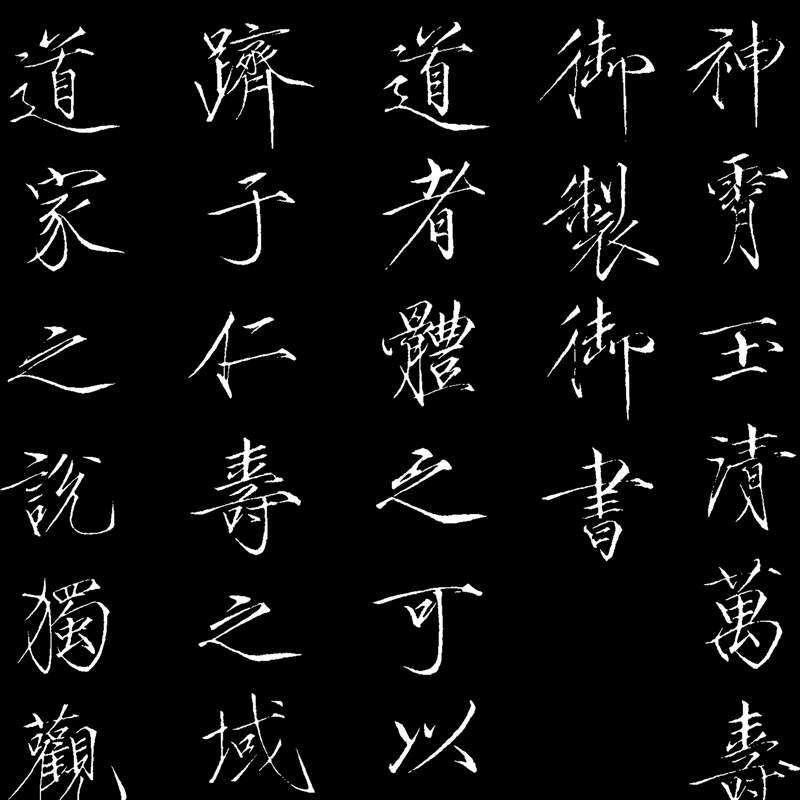 神霄玉清萬壽
御製御書
道者體之可以
躋于仁壽之域
道家之說獨觀